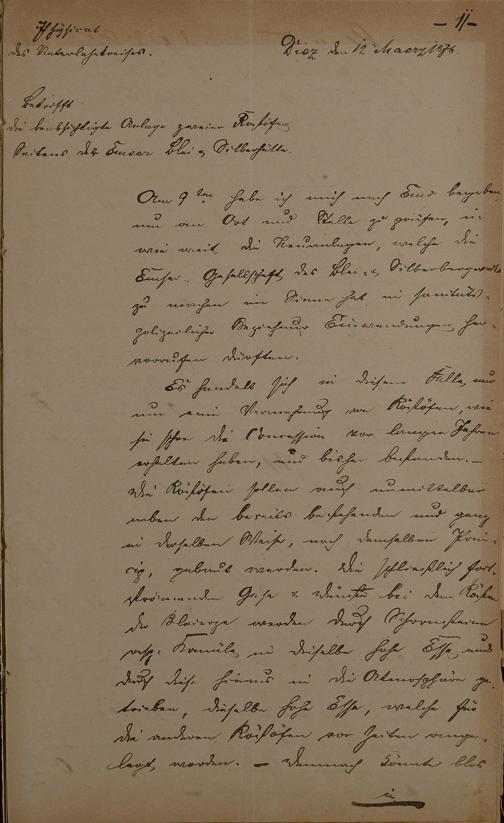 – 11 –
Physicat
des Unterlahnkreises.
Diez den 12 Maerz 1876.
Betrifft
die beabsichtigte Anlage zweier Röstöfen
Seitens der Emser Blei & Silberhütte.
Am 9ten habe ich mich nach Ems begeben
um an Ort und Stelle zu prüfen, in
wie weit die Neuanlagen, welche die
Emser Gesellschaft des Blei & Silberbergwerks
zu machen im Sinne hat, in sanitäts-
polizeilicher Beziehung Einwendungen her-
vorrufen dürften.
Es handelt sich in diesem Falle nur
um eine Vermehrung von Röstöfen, wie
sie schon die Concession vor langen Jahren
erhalten haben, und bisher bestanden. –
Die Röstöfen sollen auch unmittelbar
neben den bereits bestehenden und ganz
in derselben Weise, nach demselben Prin-
cip, gebaut werden. Die schließlich fort-
strömenden Gase & Dämpfe bei dem Rösten
der Bleierze werden durch Schornsteine
resp: Kanäle in dieselbe hohe Esse und
durch diese hinaus in die Atmosphäre ge-
trieben, dieselbe hohe Esse, welche für
die anderen Röstöfen vor Zeiten ange-
legt, worden. – Demnach könnte blos
in